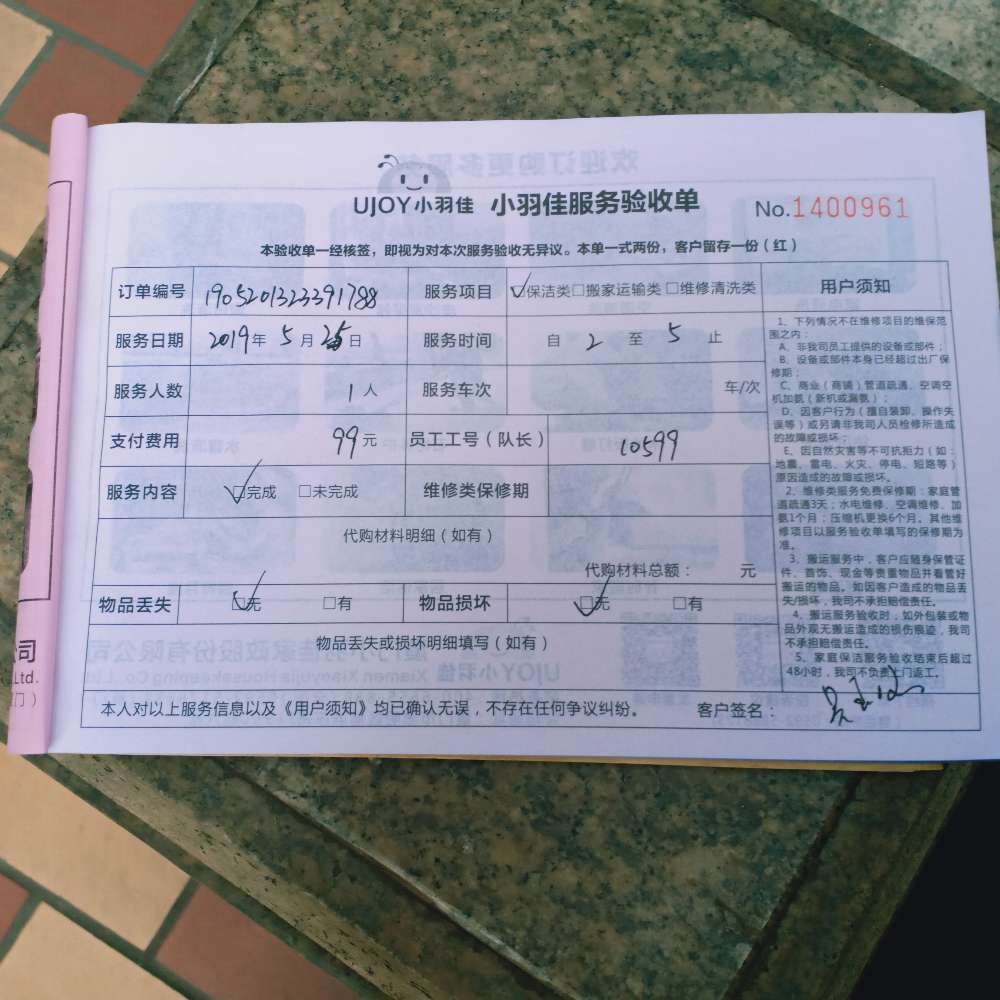 UJOY小羽佳 小羽佳服务验收单 No.1400961
本验收单一经核签，即视为对本次服务验收无异议。本单一式两份，客户留存一份（红）
订单编号 1905201323391788 服务项目 ☑保洁类□搬家运输类□维修清洗类
服务日期 2019年 5月 25日 服务时间 自 2 至 5 止
服务人数 1人 服务车次 车/次
支付费用 99元 员工工号（队长） 10599
服务内容 ☑完成 □未完成 维修类保修期
代购材料明细（如有）
代购材料总额： 元
物品丢失 ☑无 □有 物品损坏 ☑无 □有
物品丢失或损坏明细填写（如有）
本人对以上服务信息以及《用户须知》均已确认无误，不存在任何争议纠纷。 客户签名：
用户须知
1、下列情况不在维修项目的维保范
围之内：
A、非我司员工提供的设备或部件；
B、设备或部件本身已经超过出厂保
修期；
C、商业（商铺）管道疏通、空调空
机加氨（新机或漏氨）；
D、因客户行为（擅自装卸、操作失
误等）或另请非我司人员检修所造成
的故障或损坏；
E、因自然灾害等不可抗拒力（如：
地震、雷电、火灾、停电、短路等）
原因造成的故障或损坏。
2、维修类服务免费保修期：家庭管
道疏通3天；水电维修、空调维修、加
氨1个月；压缩机更换6个月。其他维
修项目以服务验收单填写的保修期为
准。
3、搬运服务中，客户应随身保管证
件、首饰、现金等贵重物品并看管好
搬运的物品。如因客户造成的物品丢
失/损坏，我司不承担赔偿责任。
4、搬运服务验收时，如外包装或物
品外观无搬运造成的损伤痕迹，我司
不承担赔偿责任。
5、家庭保洁服务验收结束后超过
48小时，我司不负责上门返工。
司
Ltd.
门）